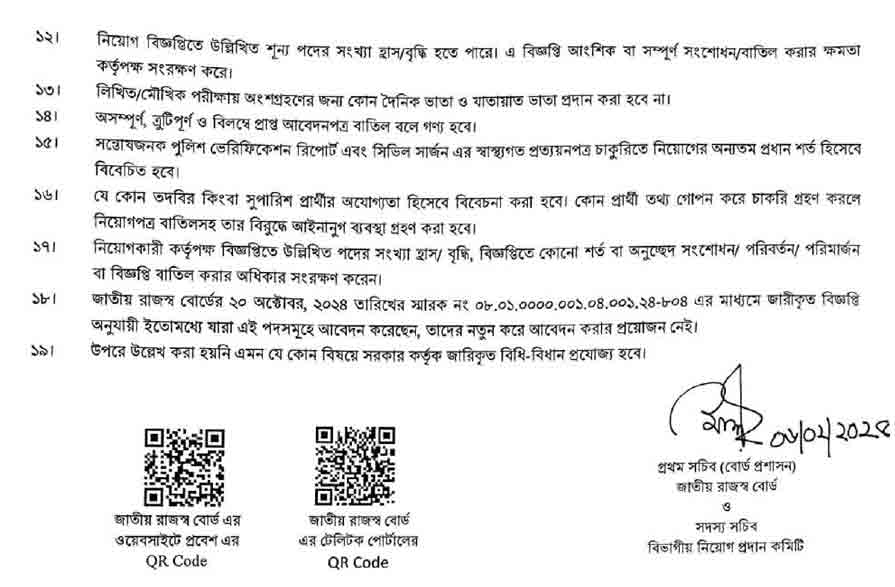 ১২। নিয়োগ বিজ্ঞপ্তিতে উল্লিখিত শূন্য পদের সংখ্যা হ্রাস/বৃদ্ধি হতে পারে। এ বিজ্ঞপ্তি আংশিক বা সম্পূর্ণ সংশোধন/বাতিল করার ক্ষমতা
কর্তৃপক্ষ সংরক্ষণ করে।
১৩। লিখিত/মৌখিক পরীক্ষায় অংশগ্রহণের জন্য কোন দৈনিক ভাতা ও যাতায়াত ভাতা প্রদান করা হবে না।
১৪। অসম্পূর্ণ, ত্রুটিপূর্ণ ও বিলম্বে প্রাপ্ত আবেদনপত্র বাতিল বলে গণ্য হবে।
১৫। সন্তোষজনক পুলিশ ভেরিফিকেশন রিপোর্ট এবং সিভিল সার্জন এর স্বাস্থ্যগত প্রত্যয়নপত্র চাকুরিতে নিয়োগের অন্যতম প্রধান শর্ত হিসেবে
বিবেচিত হবে।
১৬। যে কোন তদবির কিংবা সুপারিশ প্রার্থীর অযোগ্যতা হিসেবে বিবেচনা করা হবে। কোন প্রার্থী তথ্য গোপন করে চাকরি গ্রহণ করলে
নিয়োগপত্র বাতিলসহ তার বিরুদ্ধে আইনানুগ ব্যবস্থা গ্রহণ করা হবে।
১৭। নিয়োগকারী কর্তৃপক্ষ বিজ্ঞপ্তিতে উল্লিখিত পদের সংখ্যা হ্রাস/ বৃদ্ধি, বিজ্ঞপ্তিতে কোনো শর্ত বা অনুচ্ছেদ সংশোধন/ পরিবর্তন/ পরিমার্জন
বা বিজ্ঞপ্তি বাতিল করার অধিকার সংরক্ষণ করেন।
১৮। জাতীয় রাজস্ব বোর্ডের ২০ অক্টোবর, ২০২৪ তারিখের স্মারক নং ০৮.০১.০০০০.০০১.০৪.০০১.২৪-৮০৪ এর মাধ্যমে জারীকৃত বিজ্ঞপ্তি
অনুযায়ী ইতোমধ্যে যারা এই পদসমূহে আবেদন করেছেন, তাদের নতুন করে আবেদন করার প্রয়োজন নেই।
১৯। উপরে উল্লেখ করা হয়নি এমন যে কোন বিষয়ে সরকার কর্তৃক জারিকৃত বিধি-বিধান প্রযোজ্য হবে।
০৬/০২/২০২৫
প্রথম সচিব (বোর্ড প্রশাসন)
জাতীয় রাজস্ব বোর্ড
ও
সদস্য সচিব
বিভাগীয় নিয়োগ প্রদান কমিটি
জাতীয় রাজস্ব বোর্ড এর
ওয়েবসাইটে প্রবেশ এর
QR Code
জাতীয় রাজস্ব বোর্ড
এর টেলিটক পোর্টালের
QR Code